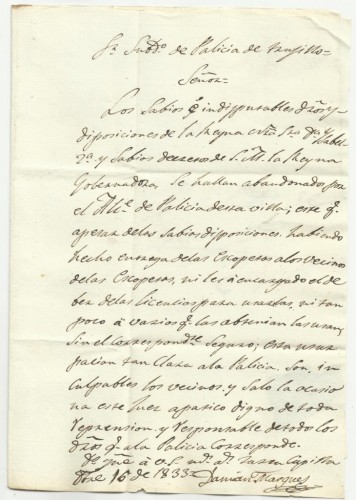 Sr. Subdo. de Policia de Trugillo
Señor
Los Sabios e indisputables dros y
disposiciones de la Reyna Ntra Sra Da Ysabel
2a. y Sabios decretos de S.M. la Reyna
Gobernadora, Se hallan abandonados por
el de Policia desta villa; este q.
apesar delas Sabias disposiciones, habiendo
hecho entrega delas Escopetas alos vecinos
delas Escopetas, ni les à encargado el de
ber delas licencias para usarlas, ni tan
poco à varios q. las obtenian las usan,
Sin el Correspondte. Seguro; esta usur
pacion tan clara ala Policia. Son, in
culpables los vecinos, y Solo la ocasio
na este Juez digno de toda
reprension, y Responsable de todo los
dros q. ala Policia Corresponde.
De gue. à V.S. ms. as.
16 de 1833 Marques